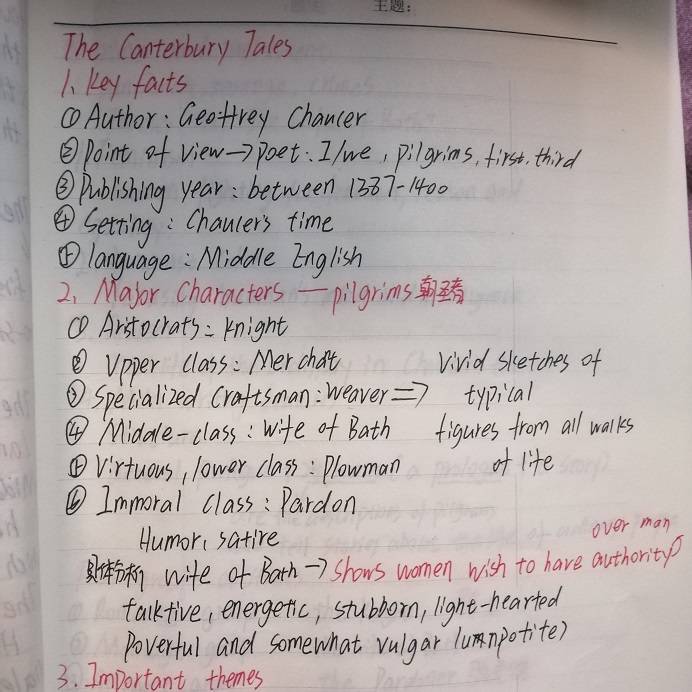 主题:
The Canterbury Tales
1、Key facts
① Author: Geoffrey Chaucer
② Point of view→poet: I/we, pilgrims, first, third
③ Publishing year: between 1387-1400
④ Setting: Chaucer's time
⑤ language: Middle English
2、Major Characters — pilgrims 朝圣者
① Aristocrats: knight
② Upper class: Merchat Vivid sketches of
③ Specialized Craftsman: Weaver => typical
④ Middle-class: Wife of Bath figures from all walks
⑤ Virtuous, lower class: Plowman of life
⑥ Immoral class: Pardon
Humor, satire
over man
具体分析 Wife of Bath → shows women wish to have authority
talktive, energetic, stubborn, light-hearted
Poverful and somewhat vulgar (umnpotite)
3. Important themes